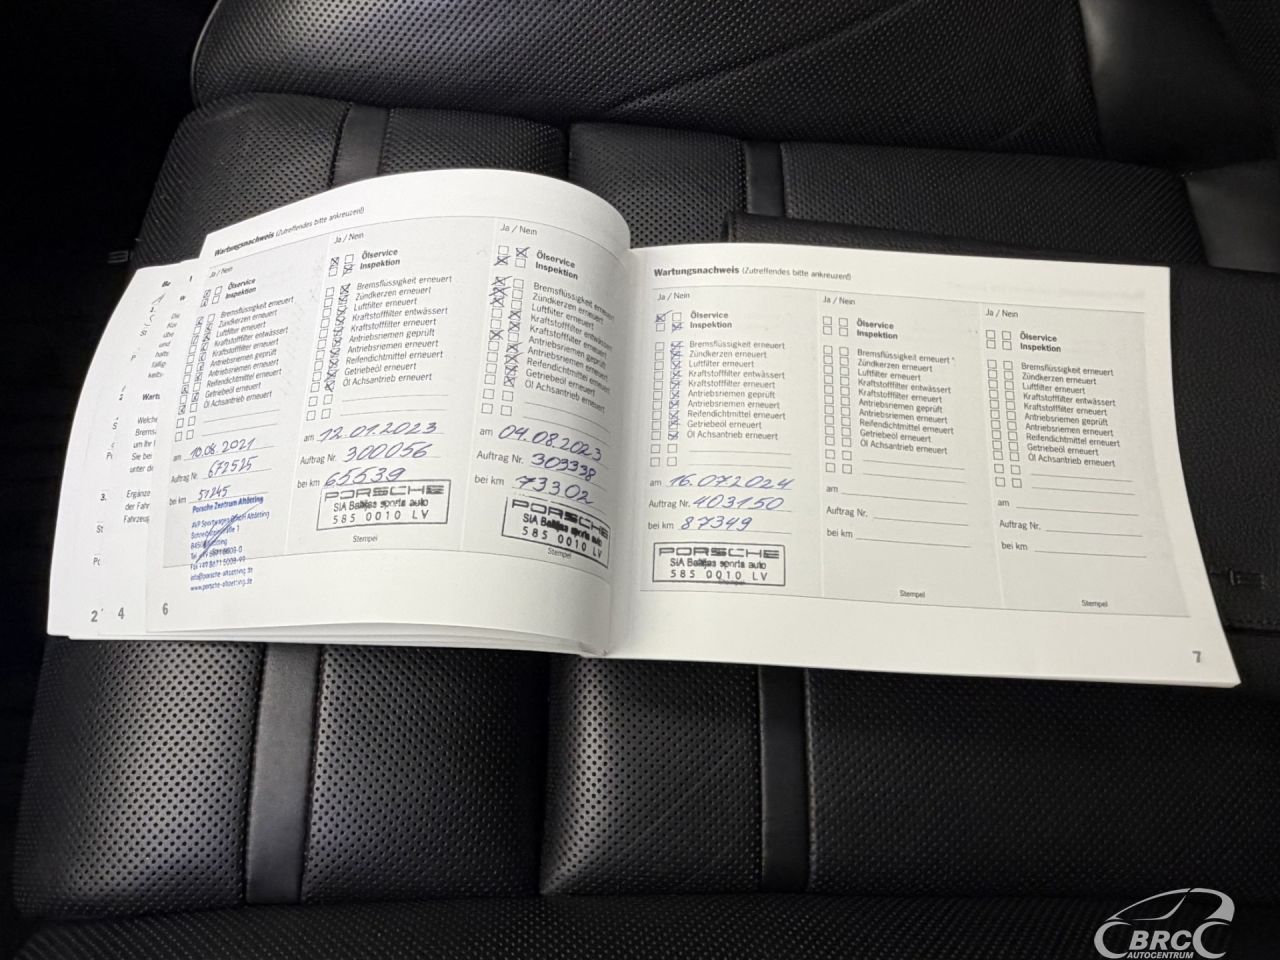 Wartungsnachweis (Zutreffendes bitte ankreuzen!)
Ja / Nein
Ölservice
Inspektion
Bremsflüssigkeit erneuert
Zündkerzen erneuern
Luftfilter erneuert
Kraftstofffilter entwässert
Kraftstofffilter erneuert
Antriebsriemen geprüft
Antriebsriemen erneuert
Reifendichtmittel erneuert
Getriebeöl erneuert
Öl Achsantrieb erneuert
am 10.08.2021
Auftrag Nr. 672525
bei km 51245
Porsche Zentrum Altötting
84503 Altötting
info@porsche-altoetting.de
www.porsche-altoetting.de
Ja / Nein
Ölservice
Inspektion
Bremsflüssigkeit erneuert
Zündkerzen erneuern
Luftfilter erneuert
Kraftstofffilter entwässert
Kraftstofffilter erneuert
Antriebsriemen geprüft
Antriebsriemen erneuert
Reifendichtmittel erneuert
Getriebeöl erneuert
Öl Achsantrieb erneuert
am 12.01.2023
Auftrag Nr. 300056
bei km 65539
PORSCHE
SIA Baltijas sporta auto
585 0010 LV
Stempel
Ja / Nein
Ölservice
Inspektion
Bremsflüssigkeit erneuert
Zündkerzen erneuern
Luftfilter erneuert
Kraftstofffilter entwässert
Kraftstofffilter erneuert
Antriebsriemen geprüft
Antriebsriemen erneuert
Reifendichtmittel erneuert
Getriebeöl erneuert
Öl Achsantrieb erneuert
am 04.08.2023
Auftrag Nr. 309338
bei km 73302
PORSCHE
SIA Baltijas sporta auto
585 0010 LV
Stempel
2
4
6
Wartungsnachweis (Zutreffendes bitte ankreuzen!)
Ja / Nein
Ölservice
Inspektion
Bremsflüssigkeit erneuert
Zündkerzen erneuern
Luftfilter erneuert
Kraftstofffilter entwässert
Kraftstofffilter erneuert
Antriebsriemen geprüft
Antriebsriemen erneuert
Reifendichtmittel erneuert
Getriebeöl erneuert
Öl Achsantrieb erneuert
am 16.07.2024
Auftrag Nr. 403150
bei km 87349
PORSCHE
SIA Baltijas sporta auto
585 0010 LV
Ja / Nein
Ölservice
Inspektion
Bremsflüssigkeit erneuert
Zündkerzen erneuern
Luftfilter erneuert
Kraftstofffilter entwässert
Kraftstofffilter erneuert
Antriebsriemen geprüft
Antriebsriemen erneuert
Reifendichtmittel erneuert
Getriebeöl erneuert
Öl Achsantrieb erneuert
am
Auftrag Nr.
bei km
Stempel
Ja / Nein
Ölservice
Inspektion
Bremsflüssigkeit erneuert
Zündkerzen erneuern
Luftfilter erneuert
Kraftstofffilter entwässert
Kraftstofffilter erneuert
Antriebsriemen geprüft
Antriebsriemen erneuert
Reifendichtmittel erneuert
Getriebeöl erneuert
Öl Achsantrieb erneuert
am
Auftrag Nr.
bei km
Stempel
7
BRC
AUTOCENTRUM